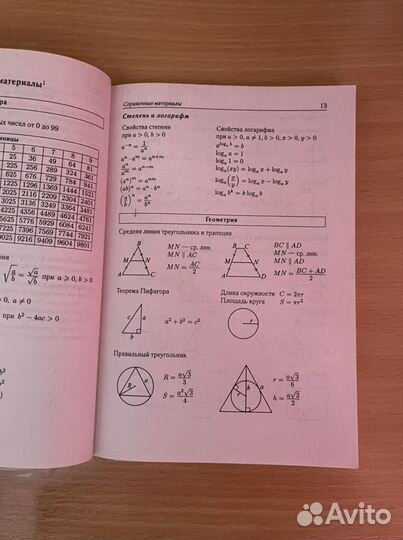 материалы¹
ра
х чисел от 0 до 99
ницы
5 6 7 8 9
25 36 49 64 81
225 256 289 324 361
1225 1296 1369 1444
4225 4356 4489 4624 4761
5625 5776 5929 6084 6241
7225 7396 7569 7744 7921
9025 9216 9409 9604 9801
√(a/b) = √a/√b при a ⩾ 0, b > 0
= 0, a ≠ 0
при b² − 4ac > 0
Справочные материалы 13
Степень и логарифм
Свойства степени
при a > 0, b > 0
a⁻ⁿ = 1/aⁿ
aⁿ · aᵐ = aⁿ⁺ᵐ
aⁿ/aᵐ = aⁿ⁻ᵐ
(aⁿ)ᵐ = aⁿᵐ
(ab)ⁿ = aⁿ · bⁿ
(a/b)ⁿ = aⁿ/bⁿ
Свойства логарифма
при a > 0, a ≠ 1, b > 0, x > 0, y > 0
a^(logₐ b) = b
logₐ a = 1
logₐ 1 = 0
logₐ(xy) = logₐ x + logₐ y
logₐ(x/y) = logₐ x − logₐ y
logₐ bᵏ = k logₐ b
Геометрия
Средняя линия треугольника и трапеции
B
M N
A C
MN — ср. лин.
MN ∥ AC
MN = AC/2
B C
M N
A D
BC ∥ AD
MN — ср. лин.
MN ∥ AD
MN = (BC + AD)/2
Теорема Пифагора
c a
b
a² + b² = c²
Длина окружности C = 2πr
Площадь круга S = πr²
r
Правильный треугольник
R a
R = a√3/3
S = a²√3/4
h a
r
r = a√3/6
h = a√3/2
Avito